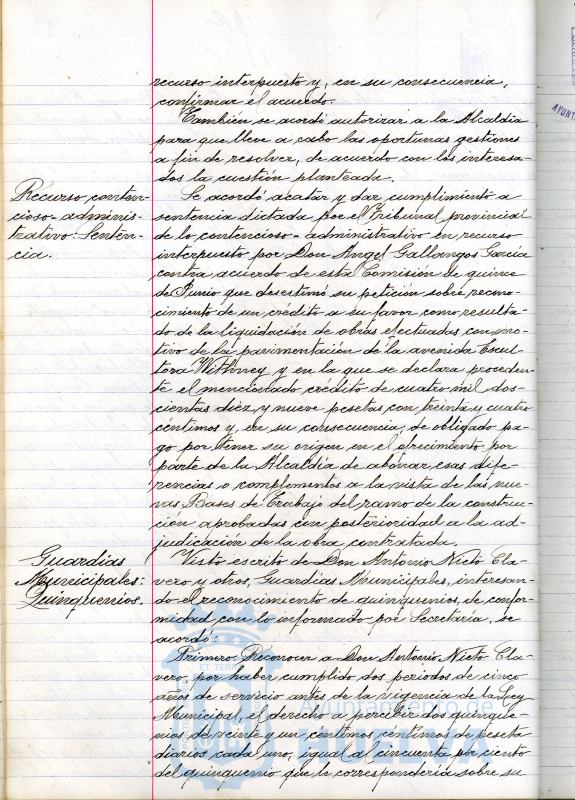 recurso interpuesto y, en su consecuencia,
confirmar el acuerdo.
También se acordó autorizar a la Alcaldía
para que lleve a cabo las oportunas gestiones
a fin de resolver, de acuerdo con los interesa-
dos la cuestión planteada.
Recurso conten-
cioso-adminis-
trativo. Senten-
cia.
Se acordó acatar y dar cumplimiento a
sentencia dictada por el Tribunal provincial
de lo contencioso-administrativo en recurso
interpuesto por Don Angel Gallangos García
contra acuerdo de esta Comisión de quince
de Junio que desestimó su petición sobre recono-
cimiento de un crédito a su favor como resulta-
do de la liquidación de obras efectuadas con mo-
tivo de la pavimentación de la avenida Escul-
tora Withney y en la que se declara proceden-
te el mencionado crédito de cuatro mil dos-
cientas diez y nueve pesetas con treinta y cuatro
céntimos y, en su consecuencia, de obligado pa-
go por tener su origen en el ofrecimiento por
parte de la Alcaldía de abonar esas dife-
rencias o complementos a la vista de las nue-
vas Bases de Trabajo del ramo de la construc-
ción aprobadas con posterioridad a la ad-
judicación de la obra contratada.
Guardias
Municipales:
Quinquenios.
Visto escrito de Don Antonio Nieto Cla-
vero y otros, Guardias Municipales, interesan-
do el reconocimiento de quinquenios, de confor-
midad con lo informado por Secretaria, se
acordó:
Primero. Reconocer a Don Antonio Nieto Cla-
vero, por haber cumplido dos periodos de cinco
años de servicio antes de la vigencia de la Ley
Municipal, el derecho a percibir dos quinque-
nios de veinte y un céntimos céntimos de peseta
diarios cada uno, igual al cincuenta por ciento
del quinquenio que le correspondería sobre su
Ayuntamiento de
HUELVA
ET TERR
AYUNT